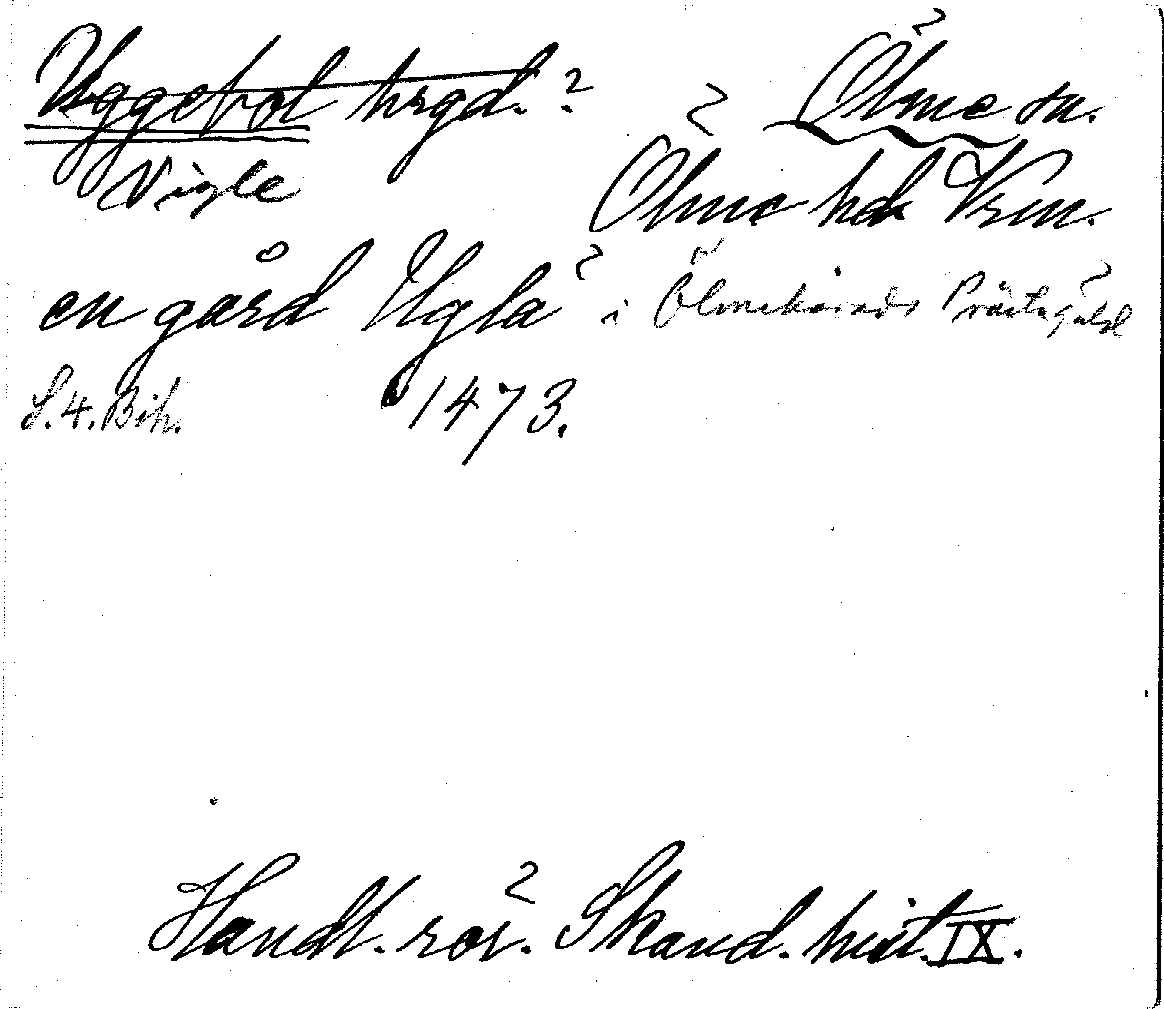 Uggebol hrgd.? Ölme sn.
Vigle Ölme hd Vrm.
en gård Ugla i Ölmehärads Prästgäld
S. 4. Bih. 1473.
Handl. rör. Skand. hist. IX.